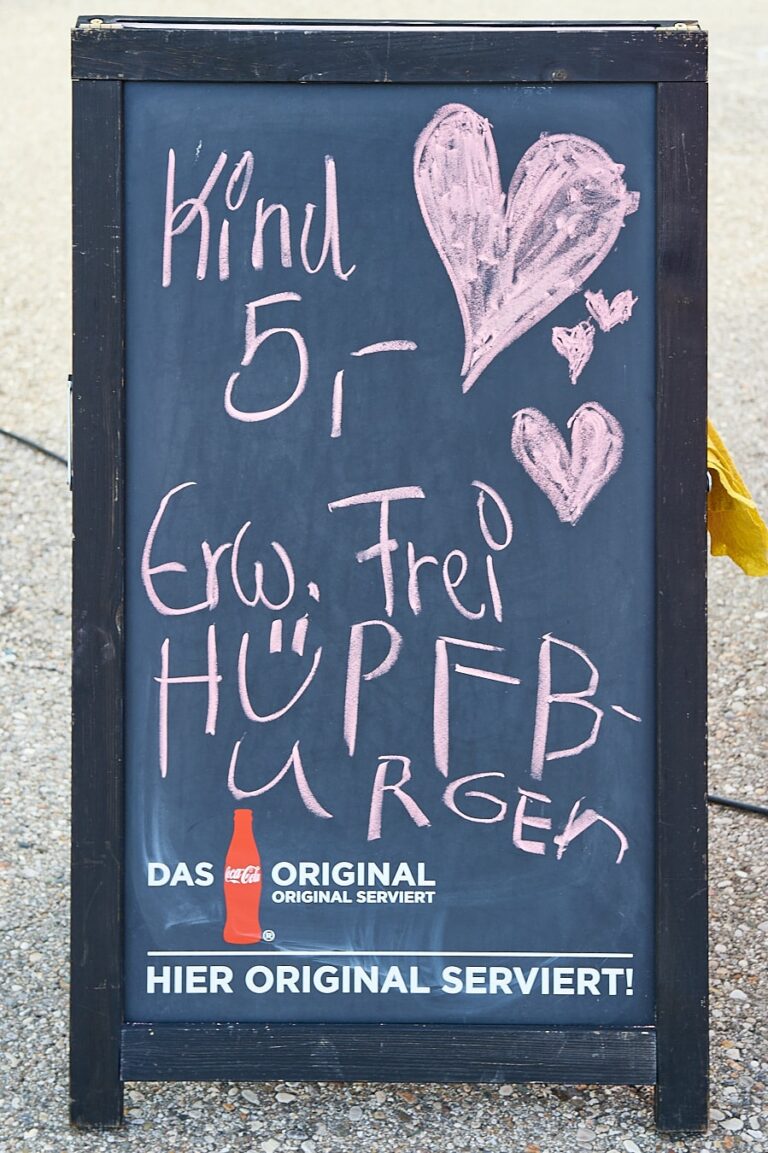 Kind
5,-
Erw. Frei
HÜPFB-
URGEn
DAS Coca-Cola ORIGINAL
ORIGINAL SERVIERT
®
HIER ORIGINAL SERVIERT!